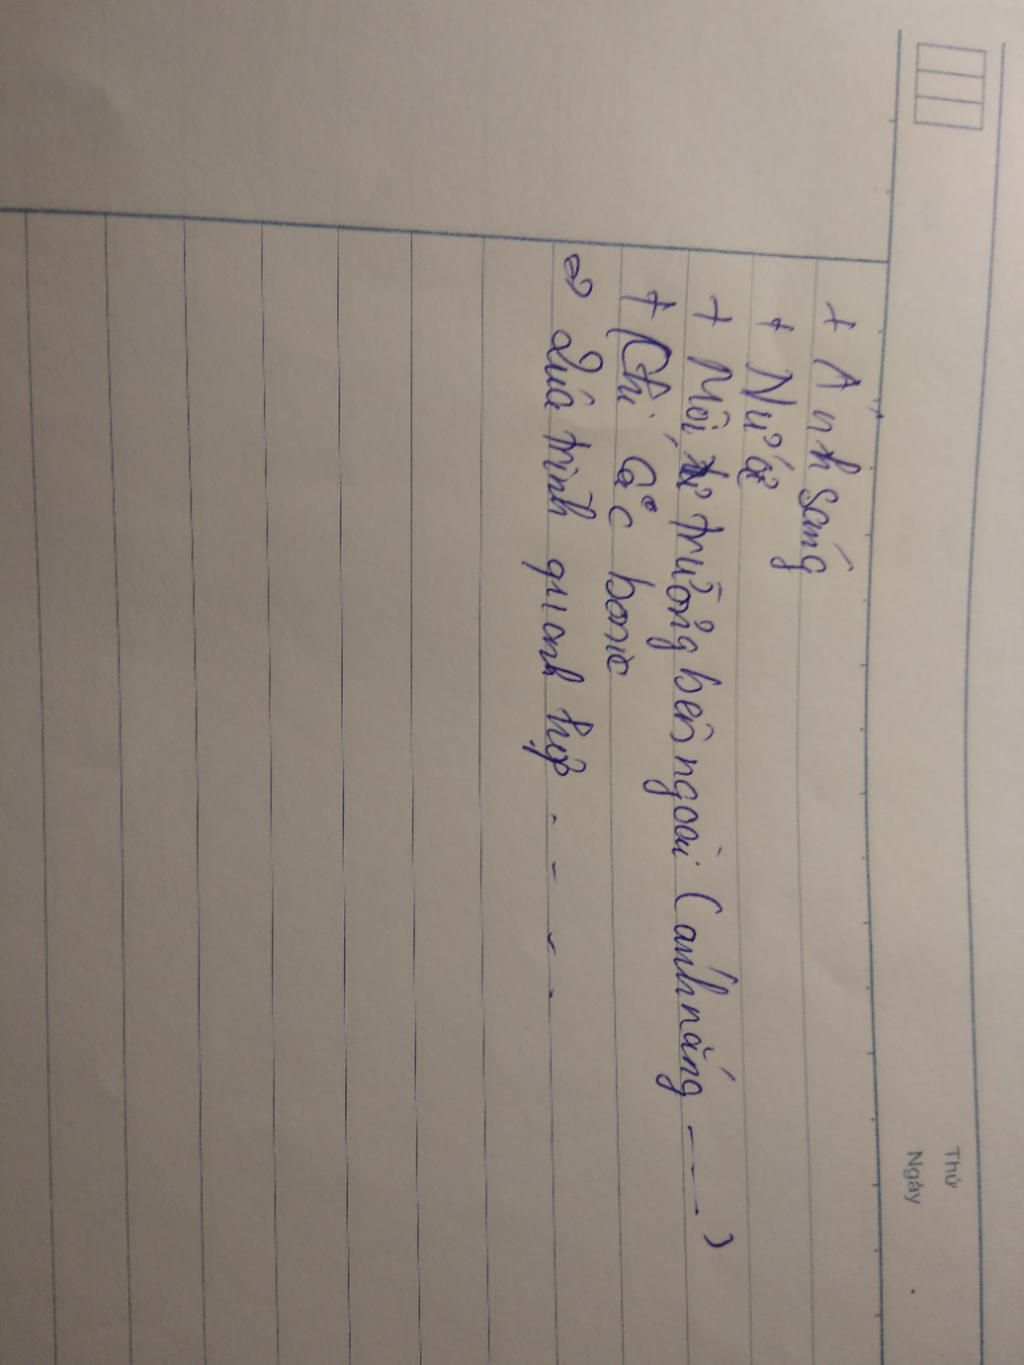 Thứ
Ngày
+ Ánh sáng
+ Nước
+ Môi trường bên ngoài (ánh nắng ----)
+ Khí Các bonic
⇒ Quá trình quanh hợp - - - -